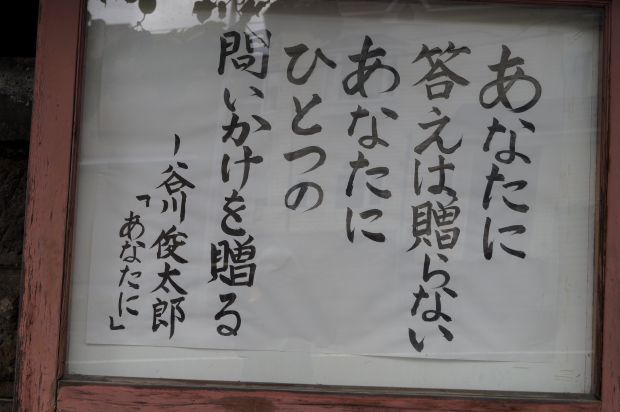 あなたに
答えは贈らない
あなたに
ひとつの
問いかけを贈る
ー谷川俊太郎
「あなたに」